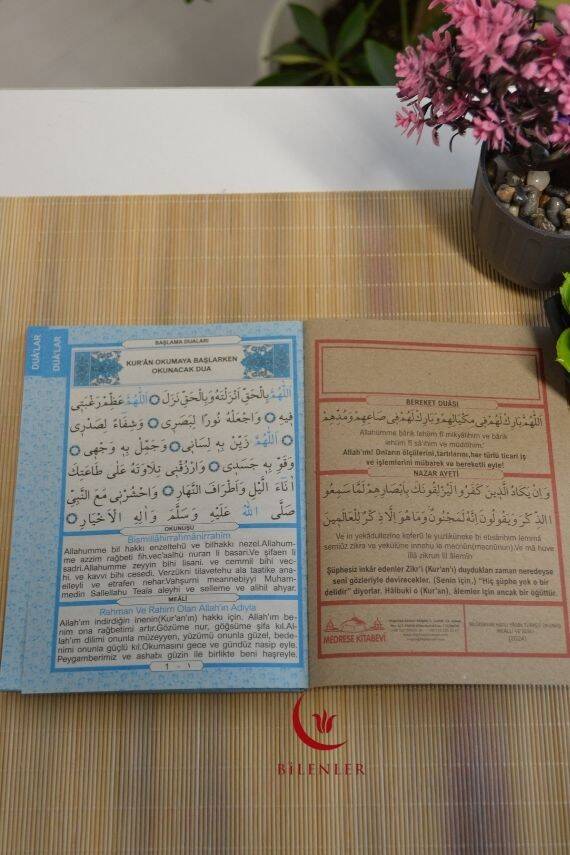 DUÂ'LAR
DUÂ'LAR
BAŞLAMA DUALARI
KUR'ÂN OKUMAYA BAŞLARKEN
OKUNACAK DUA
اَللّٰهُمَّ بِالْحَقِّ اَنْزَلْتَهُ وَبِالْحَقِّ نَزَلَ ۞ اَللّٰهُمَّ عَظِّمْ رَغْبَتِى
فِيهِ ۞ وَاجْعَلْهُ نُورًا لِبَصَرِى ۞ وَشِفَاءً لِصَدْرِى
۞ اَللّٰهُمَّ زَيِّنْ بِهِ لِسَانِى ۞ وَجَمِّلْ بِهِ وَجْهِى ۞
وَقَوِّ بِهِ جَسَدِى ۞ وَارْزُقْنِى تِلَاوَتَهُ عَلٰى طَاعَتِكَ
اٰنَاءَ الَّيْلِ وَاَطْرَافَ النَّهَارِ ۞ وَاحْشُرْنِى مَعَ النَّبِىِّ
صَلَّى اللهُ عَلَيْهِ وَسَلَّمَ وَاٰلِهِ الْاَخْيَارِ ۞
OKUNUŞU
Bismillâhirrahmânirrahîm
Allahumme bil hakkı enzeltehû ve bilhakkı nezel.Allahum-
me azzim rağbetî fih,vec'aalhü nuran li basarî.Ve şifaen li
sadrî.Allahumme zeyyin bihi lisani. ve cemmil bihi vec-
hi. ve kavvi bihi cesedi. Verzükni tilavetehu ala taatike ana-
elleyli ve etrafen nehar.Vahşurni meannebiyyi Muham-
medin Sallellahu Teala aleyhi ve selleme ve alihil ahyar.
MEÂLİ
Rahman Ve Rahim Olan Allah'ın Adıyla
Allah'ım indirdiğin inenin(Kur'an'ın) hakkı için. Allah'ım be-
nim ona rağbetimi artır.Gözüme nur, göğsüme şifa kıl.Al-
lah'ım dilimi onunla müzeyyen, yüzümü onunla güzel, bede-
nimi onunla güçlü kıl.Okumasını gece ve gündüz nasip eyle.
Peygamberimiz ve ashabı güzin ile birlikte beni haşreyle.
1 - ١
BEREKET DUÂSI
اَللّٰهُمَّ بَارِكْ لَهُمْ فِى مِكْيَالِهِمْ وَبَارِكْ لَهُمْ فِى صَاعِهِمْ وَمُدِّهِمْ
Allahümme bârik lehüm fî mikyâlihim ve bârik
lehüm fî sâ'ihim ve müddihim.
Allah'ım! Onların ölçülerini,tartılarını,her türlü ticari iş
ve işlemlerini mübarek ve bereketli eyle!
NAZAR AYETİ
وَاِنْ يَكَادُ الَّذِينَ كَفَرُوا لَيُزْلِقُونَكَ بِاَبْصَارِهِمْ لَمَّا سَمِعُو
ا الذِّكْرَ وَيَقُولُونَ اِنَّهُ لَمَجْنُونٌ وَمَا هُوَ اِلَّا ذِكْرٌ لِلْعَالَمِينَ
Ve in yekâdüllezîne keferû le yuzlikûneke bi ebsârihim lemmâ
semiûz zikra ve yekûlûne innehu le mecnûn(mecnûnun).Ve mâ huve
illâ zikrun lil âlemîn
Şüphesiz inkâr edenler Zikr'i (Kur'an'ı) duydukları zaman neredeyse
seni gözleriyle devirecekler. (Senin için,) "Hiç şüphe yok o bir
delidir" diyorlar. Hâlbuki o (Kur'an), âlemler için ancak bir öğüttür.
MEDRESE KİTABEVİ
BİLENLER